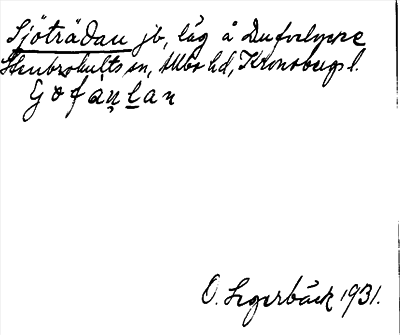 Sjöträdan jb, låg å Dufvelycke
Stenbrohults sn, Allbo hd, Kronobergs l.
O. Segerbäck 1931.